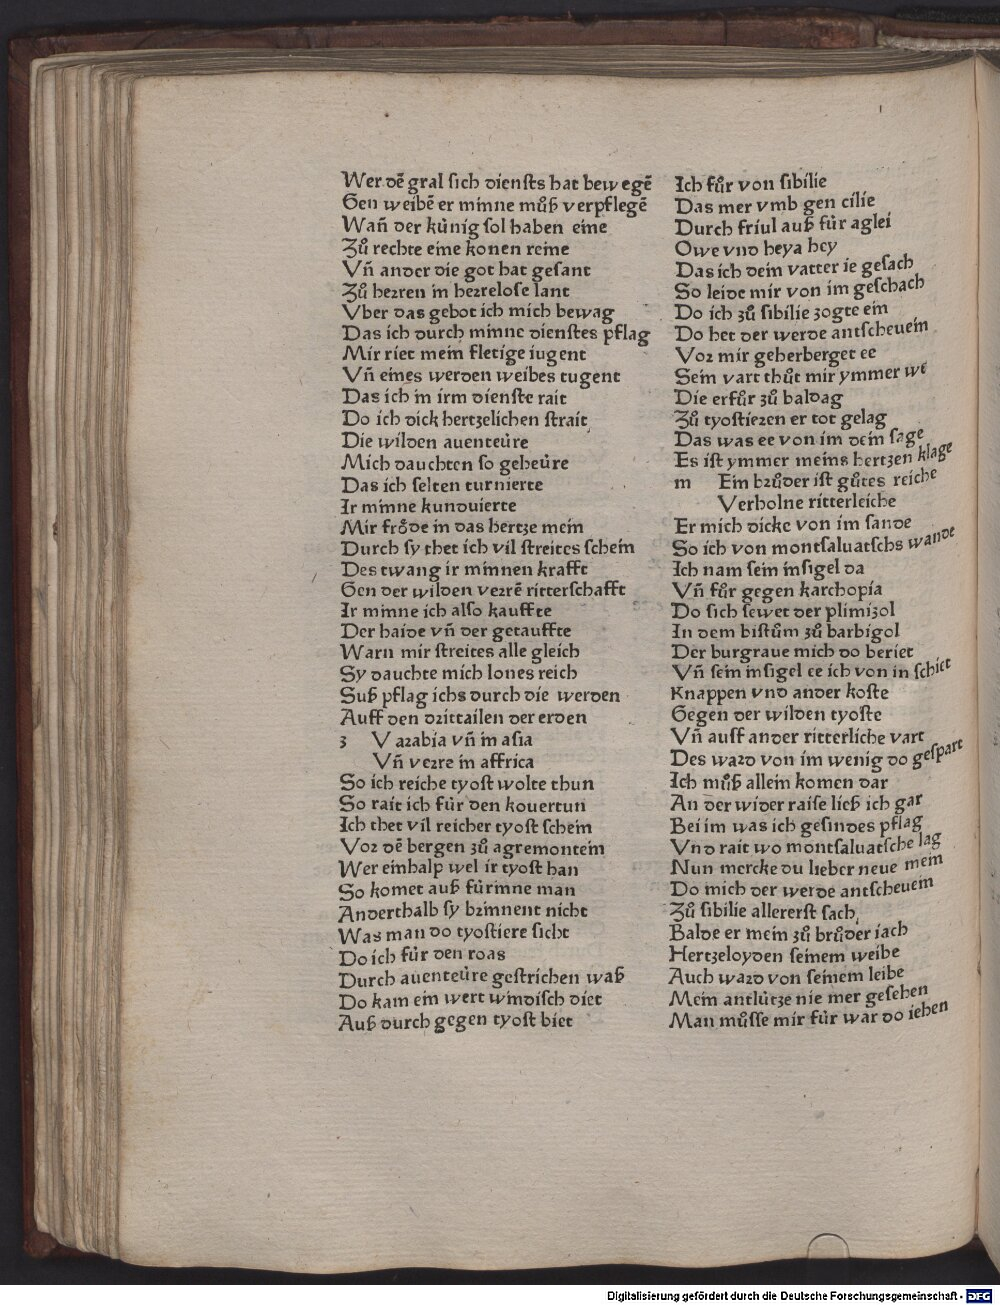 Wer dē gral ſich dienſts hat bewegē
Gen weibē er minne můß verpflegē
Wañ der kúnig ſol haben eine
Zů rechte eine konen reine
Vñ ander die got hat geſant
Zů heꝛren in heꝛreloſe lant
Vber das gebot ich mich bewag
Das ich durch minne dienſtes pflag
Mir riet mein fletige iugent
Vñ eines werden weibes tugent
Das ich in irm dienſte rait
Do ich dick hertzelichen ſtrait
Die wilden auenteúre
Mich dauchten ſo geheúre
Das ich ſelten turnierte
Ir minne kunduierte
Mir froͤde in das hertze mein
Durch ſy thet ich vil ſtreites ſchein
Des twang ir minnen krafft
Gen der wilden veꝛrē ritterſchafft
Ir minne ich alſo kauffte
Der haide vñ der getauffte
Warn mir ſtreites alle gleich
Sy dauchte mich lones reich
Suß pflag ichs durch die werden
Auff den dꝛittailen der erden
3 V aꝛabia vñ in aſia
Vñ veꝛre in affrica
So ich reiche tyoſt wolte thun
So rait ich fúr den kouertun
Ich thet vil reicher tyoſt ſchein
Voꝛ dē bergen zů agremontein
Wer einhalp wel ir tyoſt han
So komet auß fúrinne man
Anderthalb ſy bꝛinnent nicht
Was man do tyoſtiere ſicht
Do ich fúr den roas
Durch auenteúre geſtrichen waß
Do kam ein wert windiſch diet
Auß durch gegen tyoſt biet
Ich fůr von ſibilie
Das mer vmb gen cilie
Durch friul auß fúr aglei
Owe vnd heya hey
Das ich dein vatter ie geſach
So leide mir von im geſchach
Do ich zů ſibilie zogte ein
Do het der werde antſcheuein
Voꝛ mir geherberget ee
Sein vart thůt mir ymmer we
Die erfůr zů baldag
Zů tyoſtieꝛen er tot gelag
Das was ee von im dein ſage
Es iſt ymmer meins hertzen klage
m Ein bꝛůder iſt gůtes reiche
Verholne ritterleiche
Er mich dicke von im ſande
So ich von montſaluatſchs wande
Ich nam ſein inſigel da
Vñ fůr gegen karchopia
Do ſich ſewet der plimizol
In dem biſtům zů barbigol
Der burgraue mich do beriet
Vñ ſein inſigel ee ich von in ſchiet
Knappen vnd ander koſte
Gegen der wilden tyoſte
Vñ auff ander ritterliche vart
Des waꝛd von im wenig do geſpart
Ich můß allein komen dar
An der wider raiſe ließ ich gar
Bei im was ich geſindes pflag
Vnd rait wo montſaluatſche lag
Nun mercke du lieber neue mein
Do mich der werde antſcheuein
Zů ſibilie allererſt ſach
Balde er mein zů brůder iach
Hertzeloyden ſeinem weibe
Auch waꝛd von ſeinem leibe
Mein antlútze nie mer geſehen
Man můſſe mir fúr war do iehen
Digitalisierung gefördert durch die Deutsche Forschungsgemeinschaft - DFG